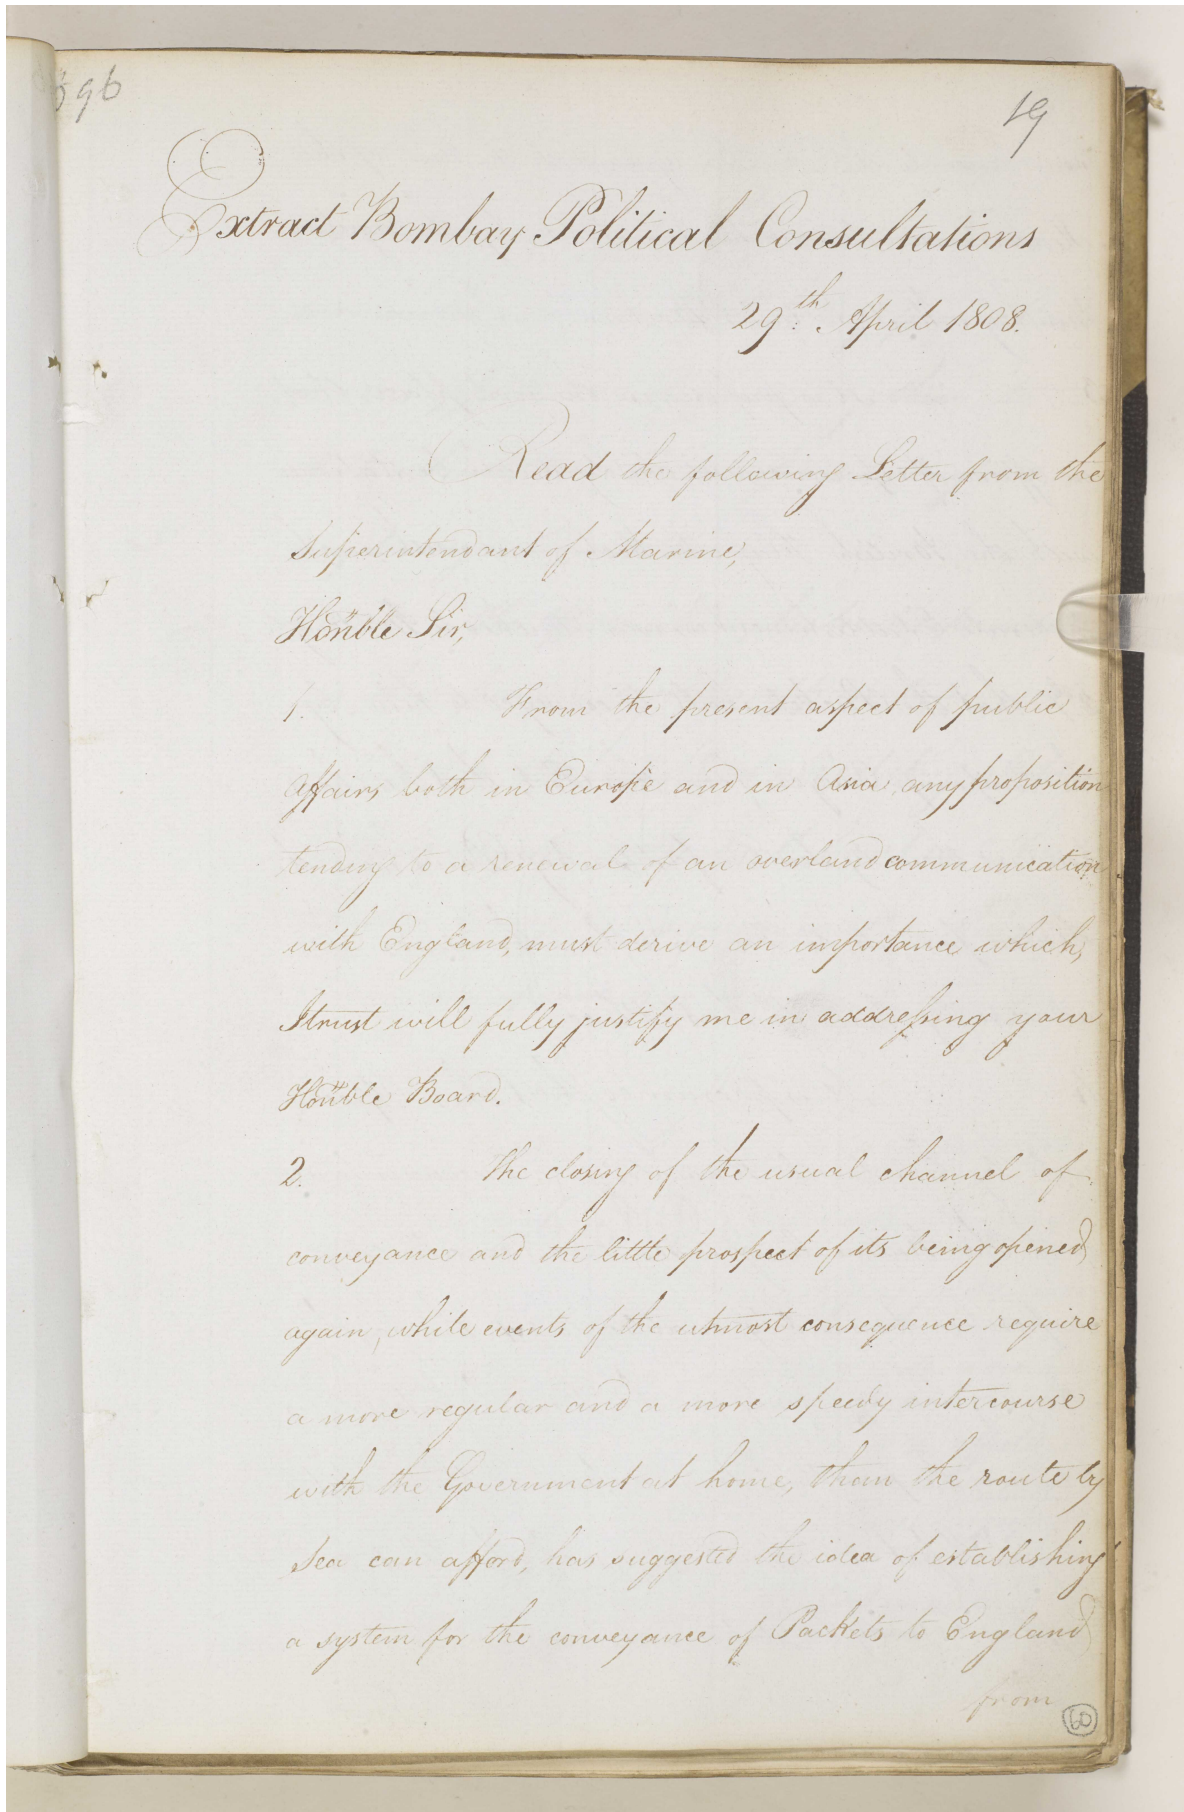 19
Extract Bombay Political Consultations
29th April 1808.
Read the following Letter from the
Superintendant of Marine,
Honble Sir,
1. From the present aspect of public
Affairs both in Europe and in Asia, any proposition
tending to a renewal of an overland communication
with England, must derive an importance which,
I trust will fully justify me in addressing your
Honble Board.
2. The closing of the usual channel of
conveyance and the little prospect of its being opened
again, while events of the utmost consequence require
a more regular and a more speedy intercourse
with the Government at home, than the route by
Sea can afford, has suggested the idea of establishing
a system for the conveyance of Packets to England
from
60